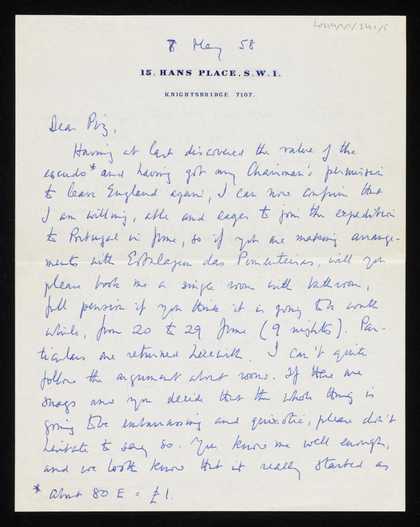 8 May 58
15, HANS PLACE, S.W.1.
KNIGHTSBRIDGE 7107.
Dear
Having at last discovered the value of the
escudo* and having got my Chairman's permission
to leave England again, I can now confirm that
I am willing, able and eager to join the expedition
to Portugal in June, so if you are making arrange-
ments with Estalagem das, will you
please book me a single room with bathroom,
full pension if you think it is going to be worth
while, from 20 to 29 June (9 nights). Par-
ticulars are returned herewith. I can't quite
follow the argument about rooms. If there are
snags and you decide that the whole thing is
going to be embarrassing and quixotic, please don't
hesitate to say so. You know me well enough,
and we both know that it really started as
* about 80 E = £1.